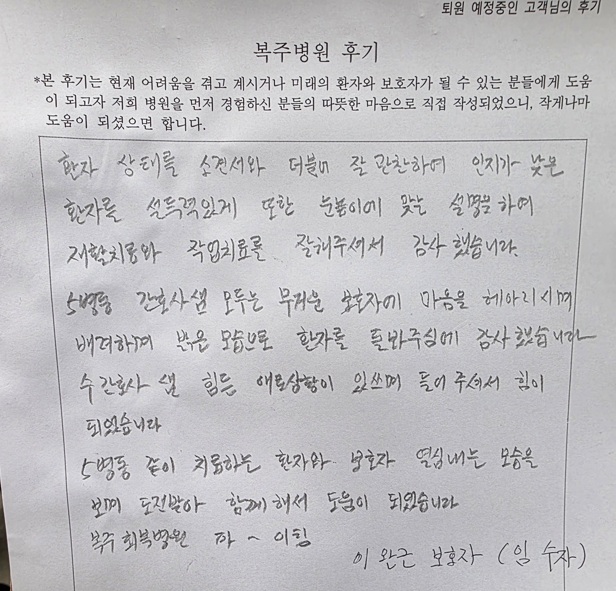 퇴원 예정중인 고객님의 후기
복주병원 후기
*본 후기는 현재 어려움을 겪고 계시거나 미래의 환자와 보호자가 될 수 있는 분들에게 도움
이 되고자 저희 병원을 먼저 경험하신 분들의 따뜻한 마음으로 직접 작성되었으니, 작게나마
도움이 되셨으면 합니다.
환자 상태를 소견서와 더불어 잘 관찰하여 인지가 낮은
환자를 설득력있게 또한 눈높이에 맞는 설명을 하여
재활치료와 작업치료를 잘해주셔서 감사 했습니다.
5병동 간호사샘 모두는 무거운 보호자에 마음을 헤아리시며
배려하며 밝은 모습으로 환자를 돌봐주심에 감사 했습니다
수간호사 샘 힘든 애로상황이 있쓰며 들어 주셔서 힘이
되었습니다
5병동 같이 치료하는 환자와 보호자 열심내는 모습을
보며 도전받아 함께해서 도움이 되었습니다
복주 회복병원 파 ~ 이팅
이 완근 보호자 (임 수자)